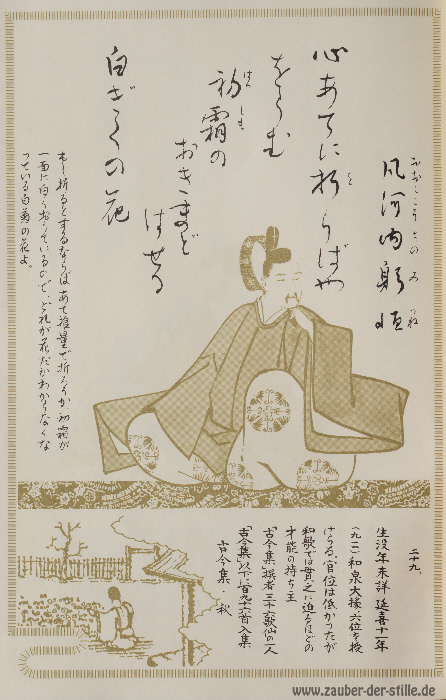 おおしこうちの みつね
凡河内躬恒
心あてに折らばや
をらむ
初霜の
はつしも
おきまど
はせる
白ぎくの花
もし折るとするならばあて推量で折ろうか初霜が
一面に白くおりているので、どれが花だかわからなくな
っている白菊の花よ。
二十九
生没年未詳 延喜十一年
(九一一)和泉大掾六位を授
けらる。官位は低かったが
和歌では貫之に迫るほどの
才能の持ち主
「古今集」撰者三十六歌仙の一人
「古今集」以下に百九十六首入集
古今集・秋
www.zauber-der-stille.de